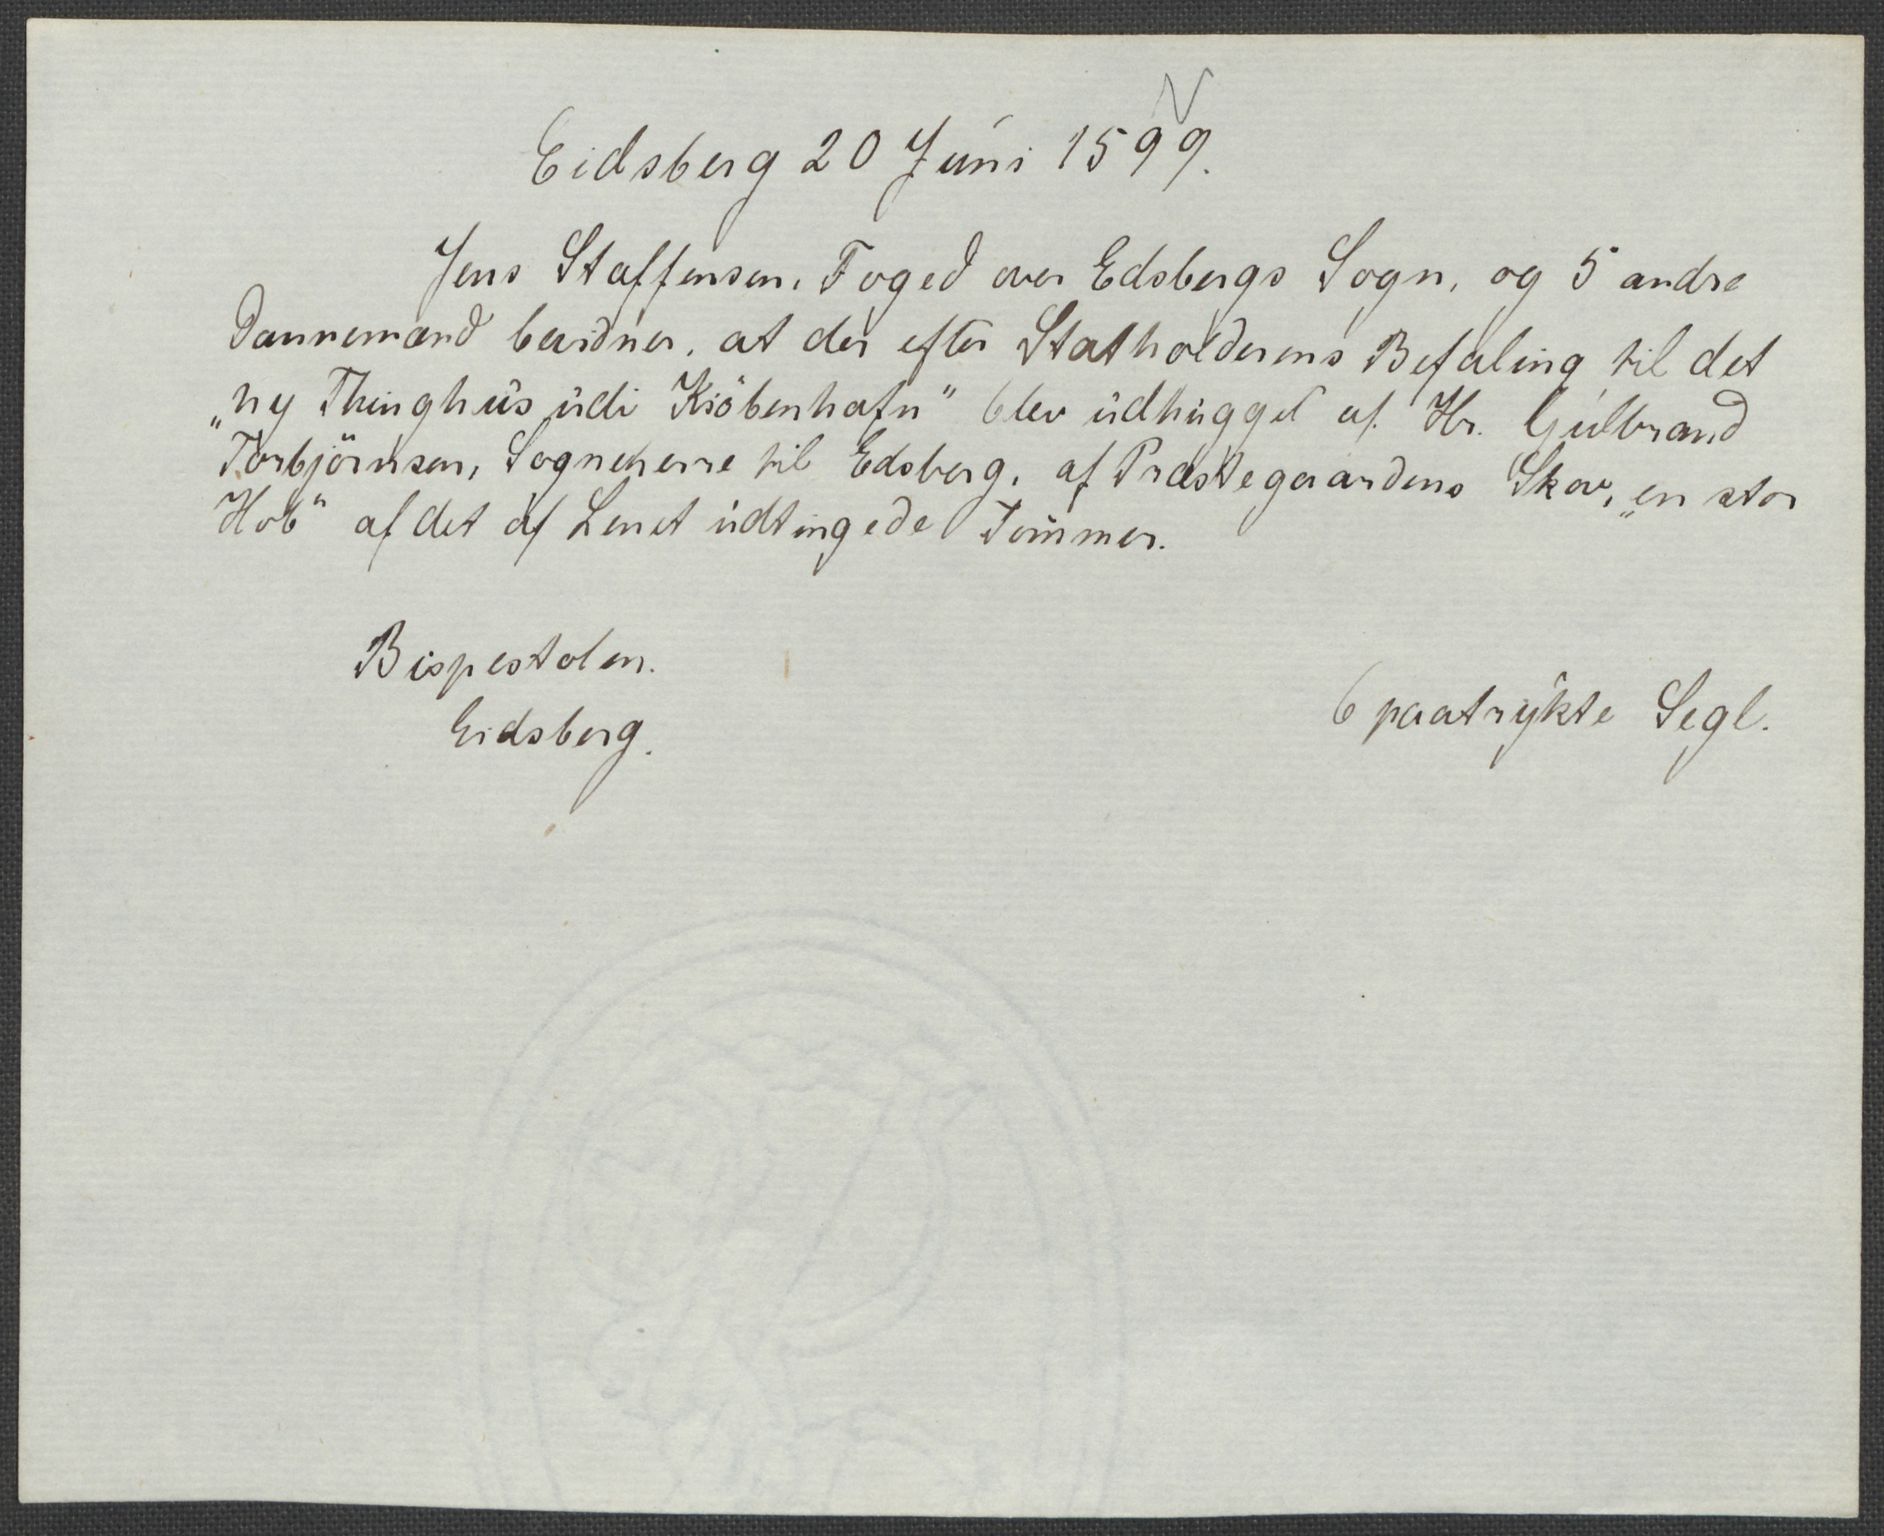 N
Eidsberg 20 Juni 1599.
Jens Staffensen, Foged over Edsbergs Sogn, og 5 andre
Dannemænd bevidner, at der efter Statholderens Befaling til det
„ny Thinghus udi Kiöbenhafn" blev udhugget af Hr. Gulbrand
Torbjörnsen, Sogneherre til Edsberg, af Præstegaardens Skov, „en stor
Hob" af det af Lenet udtingede Tømmer.
Bispestolen.
Eidsberg.
6 paatrykte Segl.